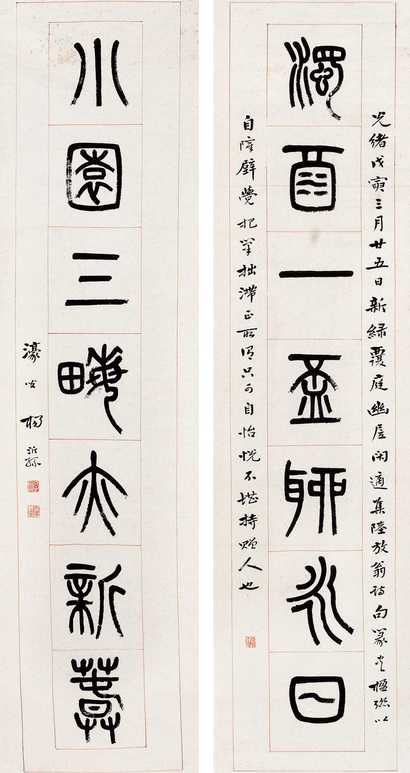 光緒戊寅三月廿五日新綠覆庭幽居闲適集陸放翁詩句篆書楹聯以
濁酉一盃聊永日
自障壁覺把筆拙滯正所謂只可自怡悅不堪持贈人也
小園三畮亦新
濠叟楊沂孫